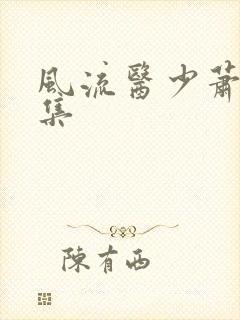 風流醫少蕭
集
陳有西